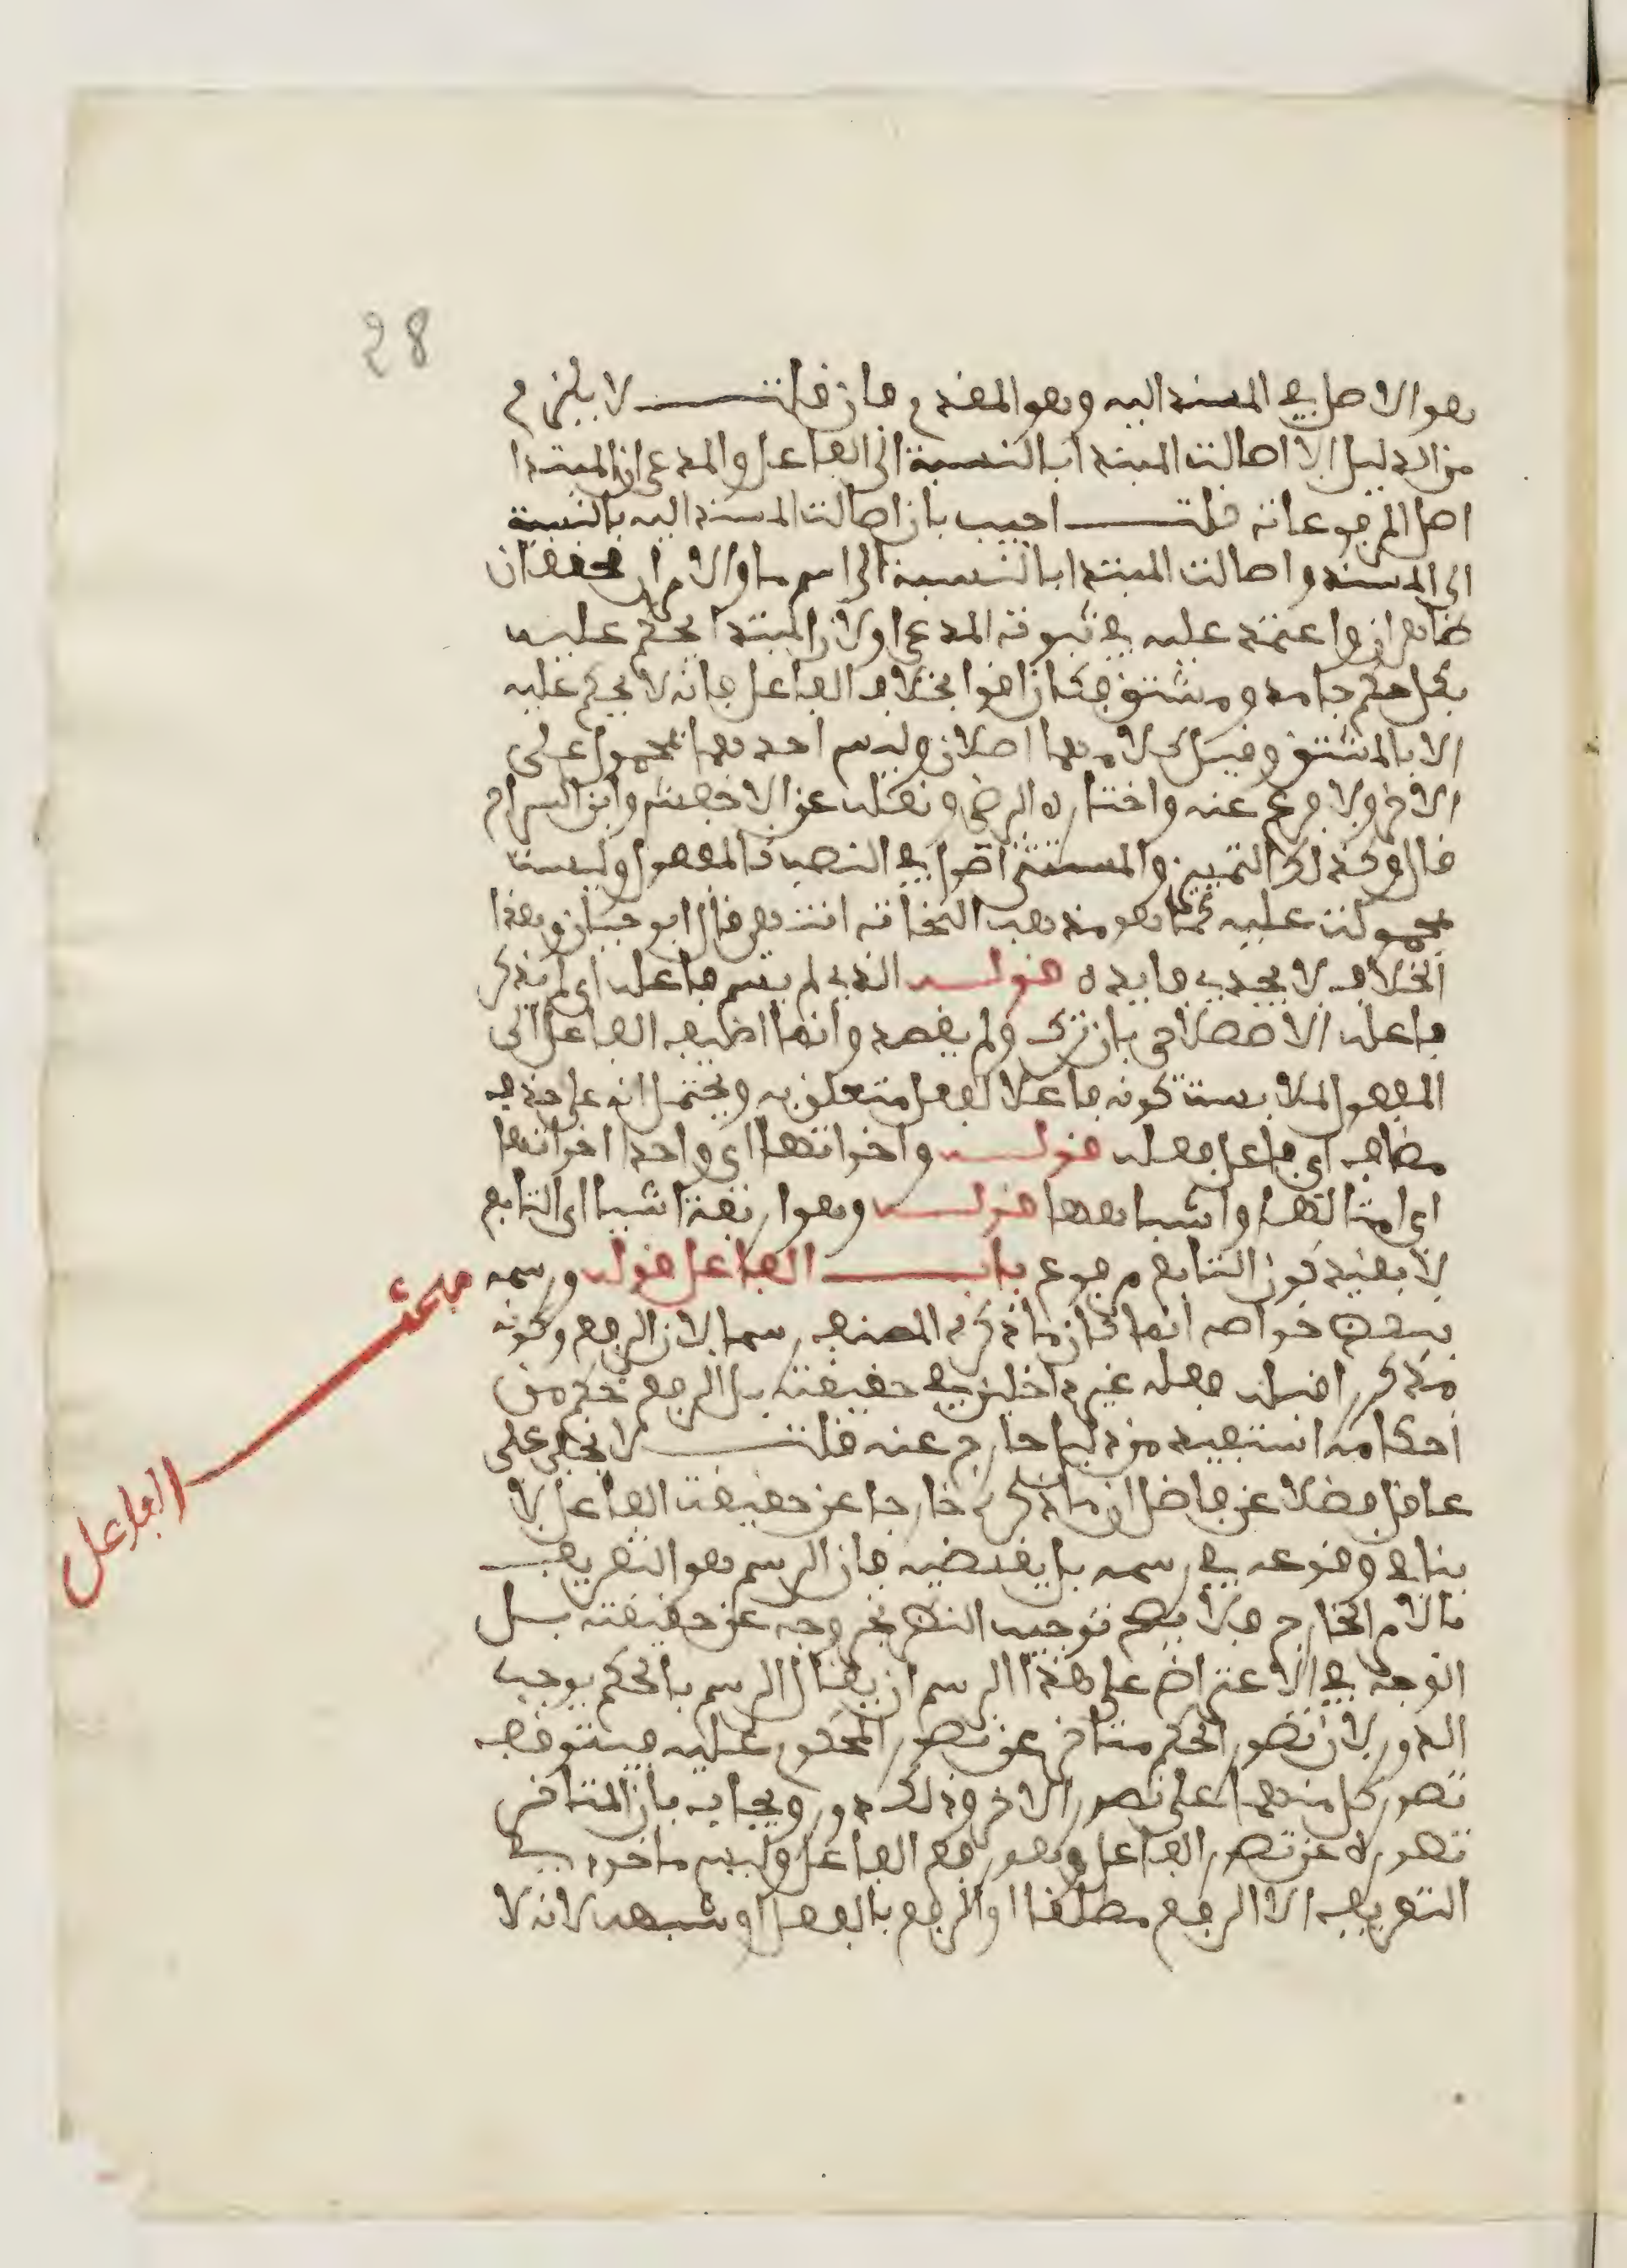 28
هو الاصل في المسند اليه وهو المقدم فان قلت لا يلزم
من الدليل الا اصالت المبتدا بالنسبة الى الفاعل والمدعى ان المبتدا
اصل المرفوعات قلت اجيب بان اصالت المسند اليه بالنسبة
الى المسند واصالت المبتدا بالنسبة الى اسم ما والامران محققان
ظاهران واعتمد عليه في ثبوت المدعى اولان المبتدا يحكم عليه
بكل حكم جامد ومشتق فكان اقوا بخلاف الفاعل فانه لا يحكم عليه
الا بالمشتق وقيل كلا منهما اصلان وليس احدهما بمحمول على
الاخر ولا فرع عنه واختاره الرضي ونقله عن الاخفش وابن السراج
قال وكذلك التمييز والمستثنى اصول في النصب كالمفعول وليست
بمحمولت عليه كما هو مذهب النحات انتهى قال ابو حيان وهذا
الخلاف لا يجدي فايده قوله الذي لم يسم فاعله اي لم يذكر
فاعله الاصطلاحي بان ترك ولم يقصد وانما اضيف الفاعل الى
المفعول لملابست كونه فاعلا لفعل متعلق به ويحتمل انه على حذف
مضاف اي فاعل فعله قوله واخواتها اي واحد اخواتها
اي امثالها واشباهها قوله وهو اربعة اشيا اي التابع
لا بقيد كون التابع مرفوع باب الفاعل قوله ورسمه
ببعض خواصه انما كان ما ذكره المصنف رسما لان الرفع وكونه
مذكر اقبله فعله غير داخلين في حقيقته بل الرفع حكم من
احكامه استفيد من دليل خارج عنه قلت لا يخفى على
عاقل فضلا عن فاضل ان ما ذكره خارجا عن حقيقت الفاعل لا
ينافي وقوعه في رسمه بل يقتضيه فان الرسم هو التعريف
بالامر الخارج فلا يصح توجيه النظر بخروجه عن حقيقته بل
الوجه في الاعتراض على هذا الرسم ان يقال الرسم بالحكم يوجب
الدور لان تصور الحكم متاخر عن تصور المحكوم عليه فيتوقف
تصور كل منهما على تصور الاخر وذلك دور ويجاب بان المتاخر
تصوره عن تصور الفاعل وهو رفع الفاعل وليس ماخوذ في
التعريف الا الرفع مطلقا او الرفع بالفعل او شبهه لانه لا
مبحث الفاعل